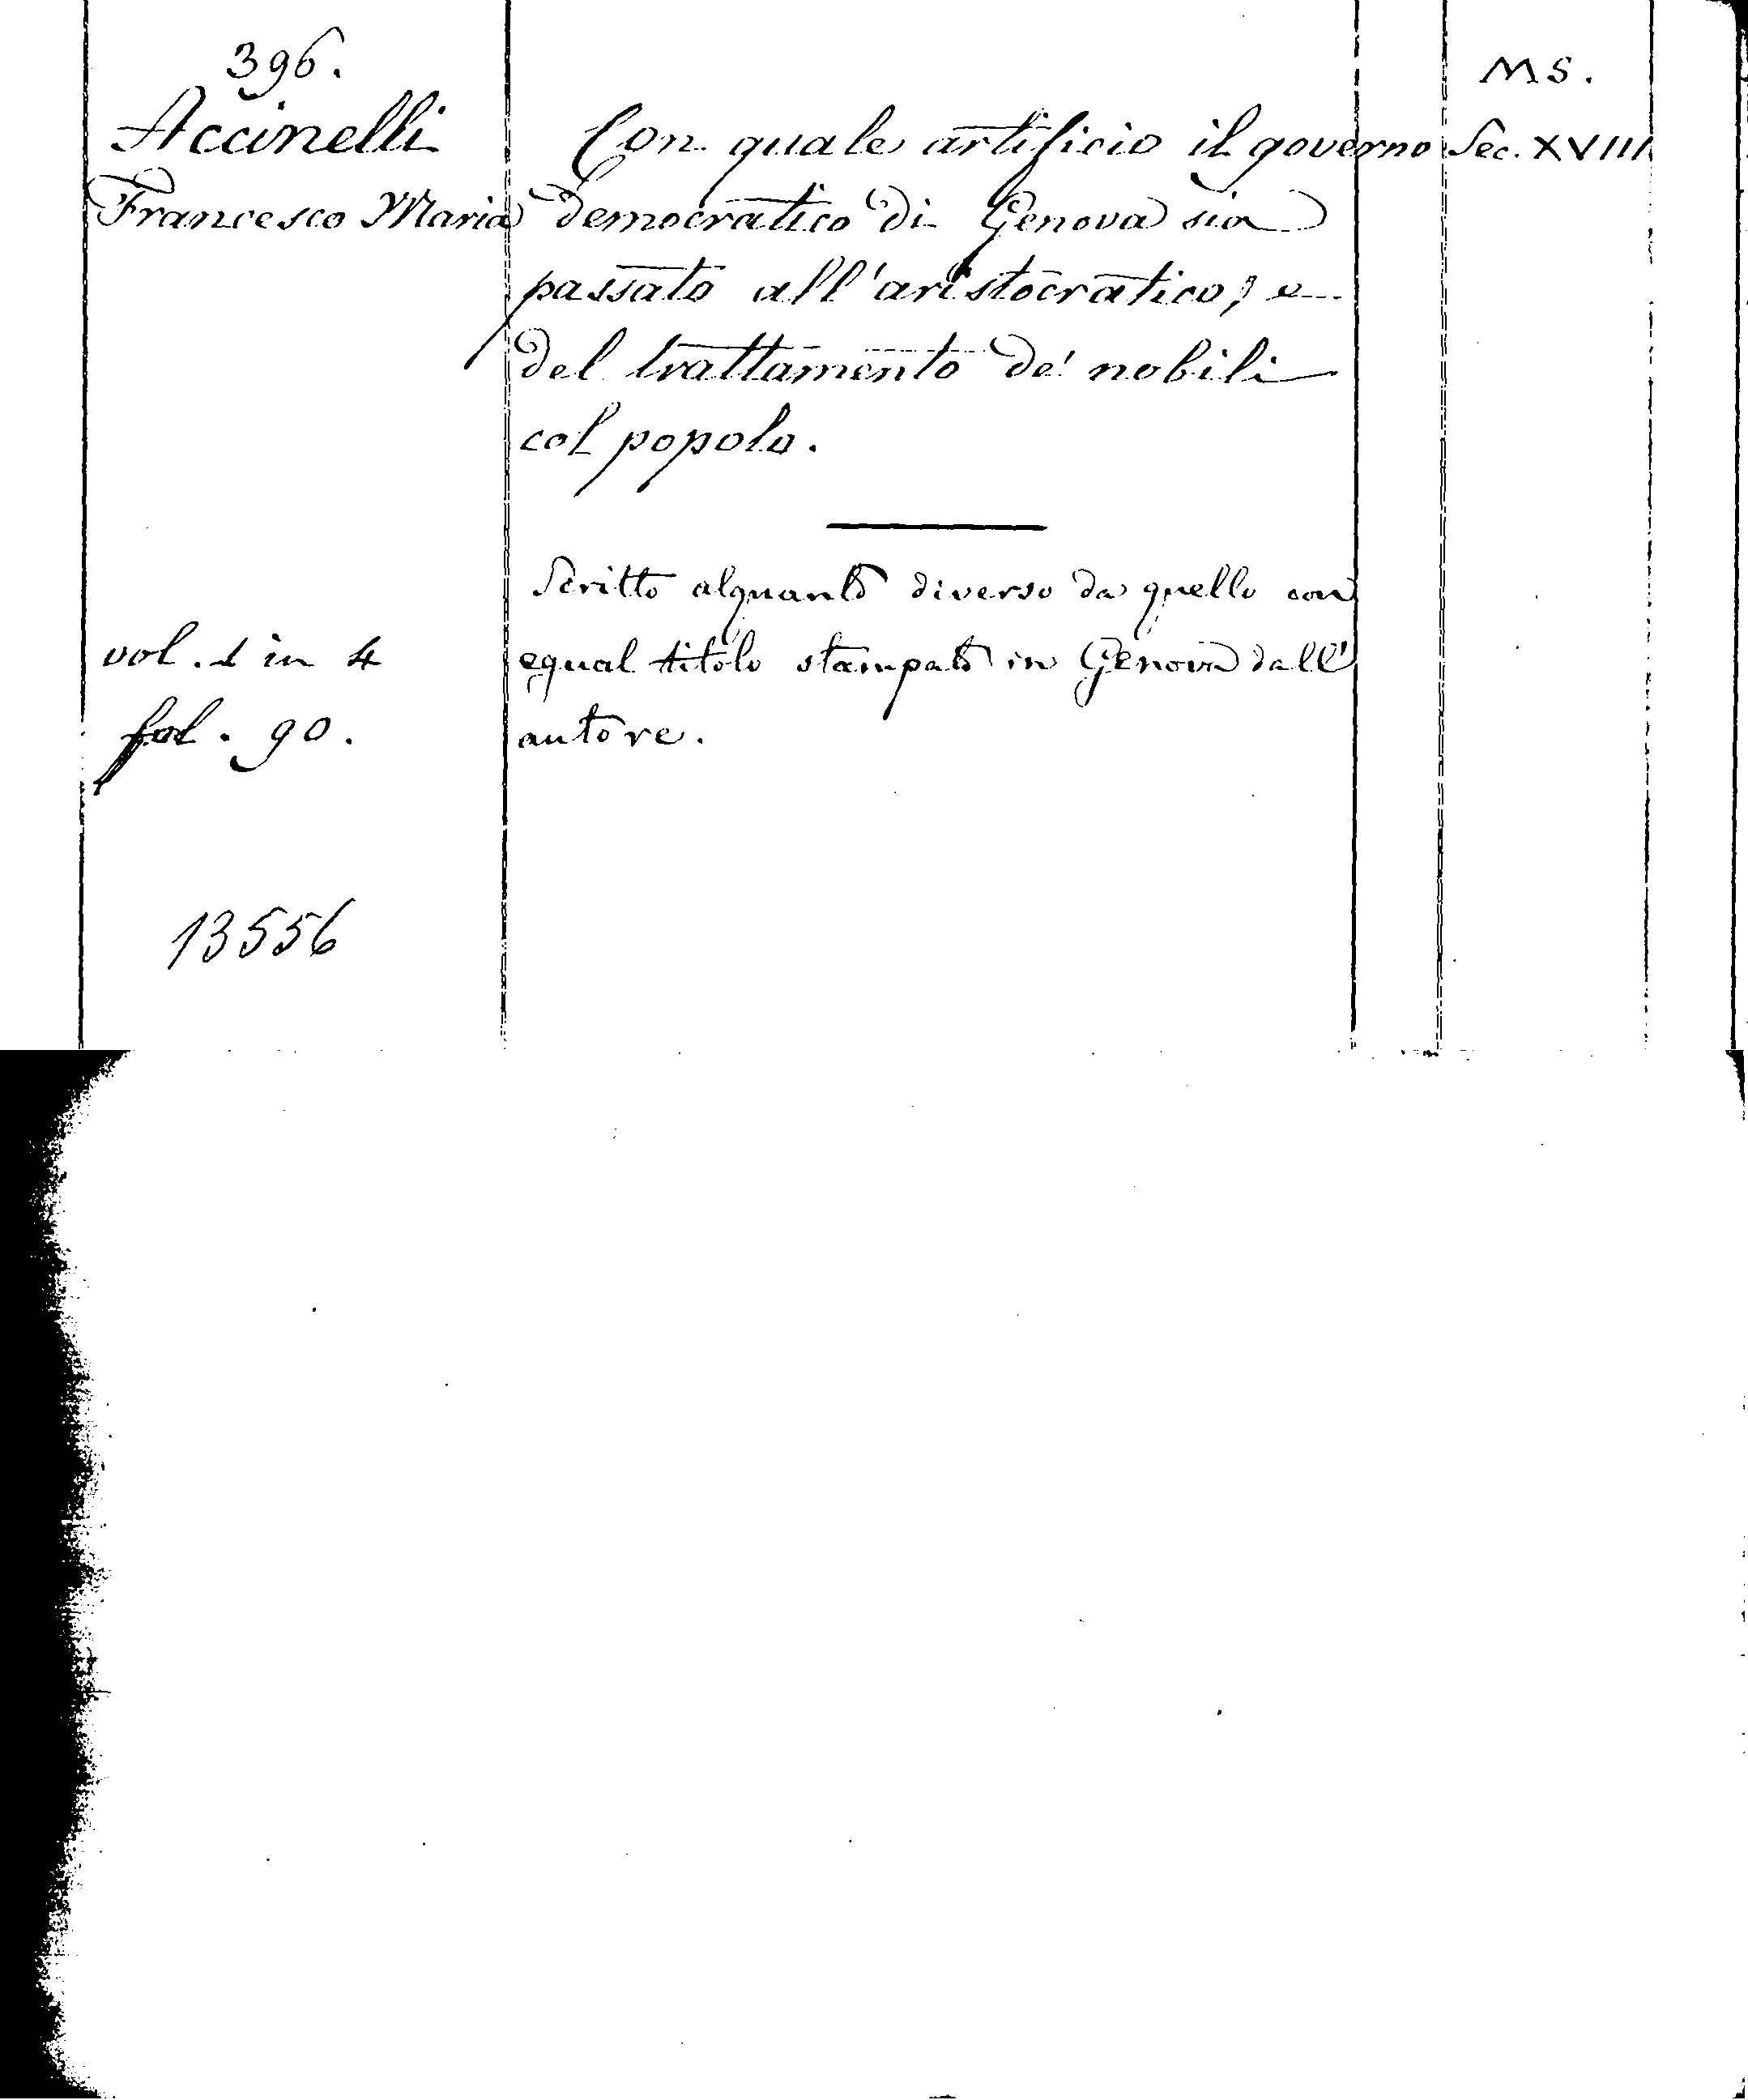 396.
MS.
Accinelli
Con quale artificio il governo
Sec. XVIII
Francesco Maria
democratico di Genova sia
passato all'aristocratico, e
del trattamento de' nobili
col popolo.
Scritto alquanto diverso da quello con
vol. 1 in 4
equal titolo stampato in Genova dall'
fol. 90.
autore.
13556